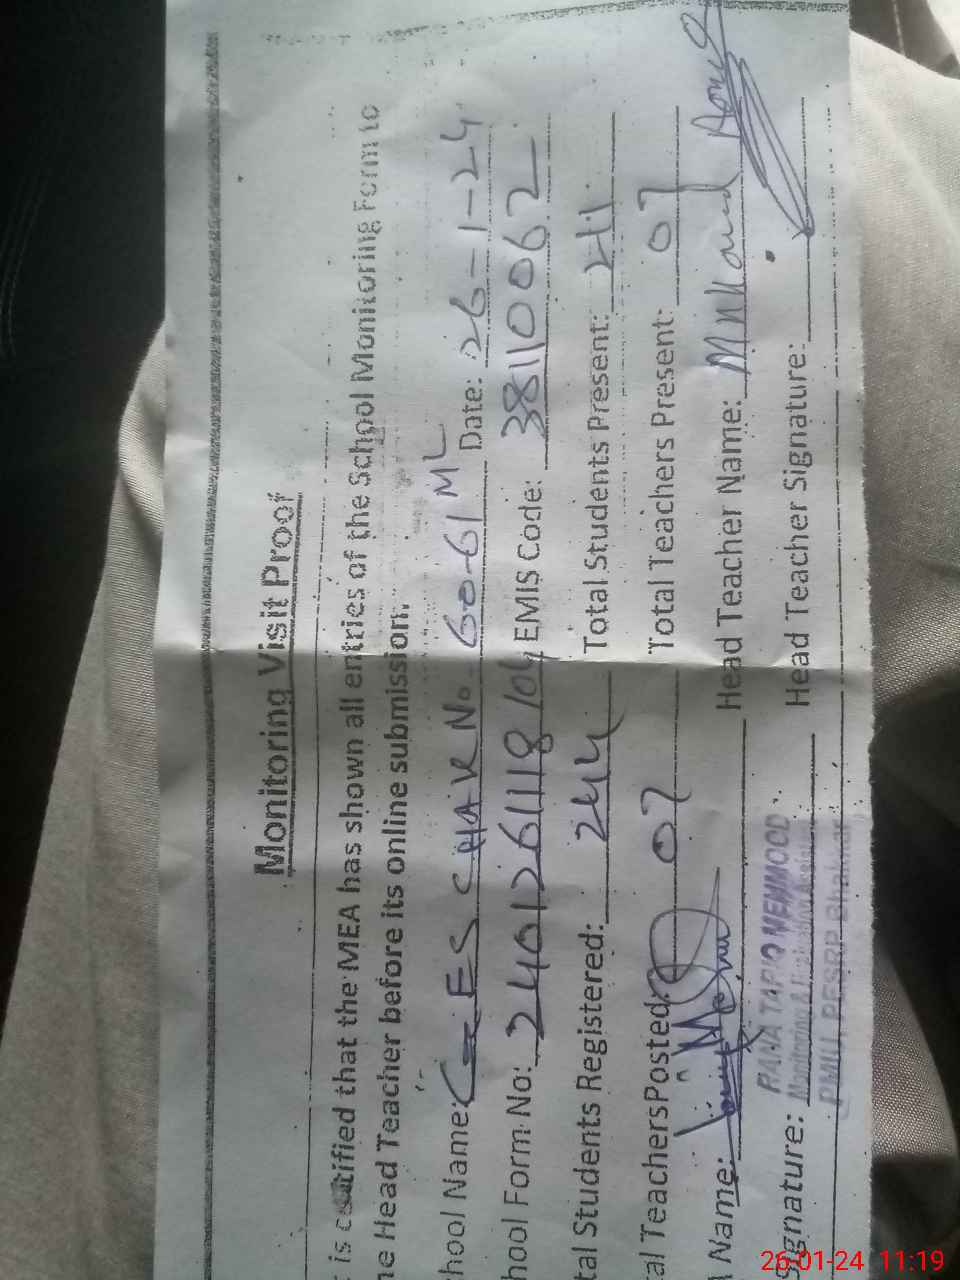 Monitoring Visit Proof
is certified that the MEA has shown all entries of the School Monitoring Form to
he Head Teacher before its online submission.
hool Name: GES CHAK No. 60-61 ML Date: 26-1-24
hool Form No: 2401261118104 EMIS Code: 38110062
tal Students Registered: 244 Total Students Present: 211
tal TeachersPosted: 07 Total Teachers Present: 07
Name: Head Teacher Name:
Signature: Head Teacher Signature:
RANA TARIQ MEHMOOD
Monitoring & Evaluation Assistant
PMIU, PESRP Bhakkar
26-01-24 11:19